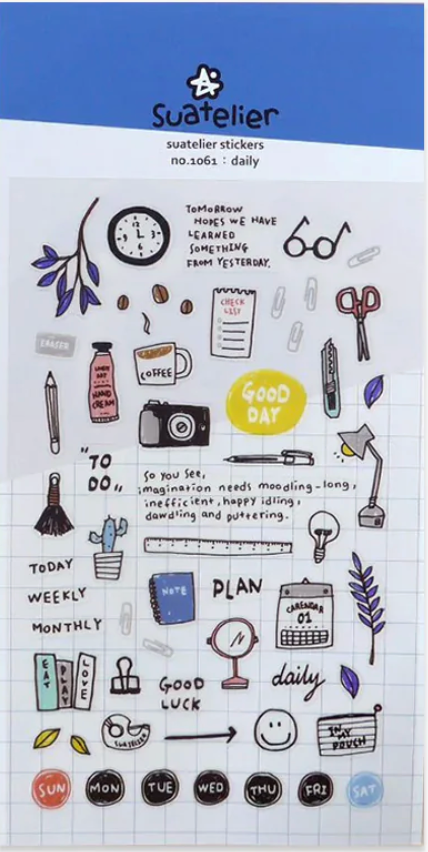 suatelier
suatelier stickers
no.1061 : daily
TOMORROW
HOPES WE HAVE
LEARNED
SOMETHING
FROM YESTERDAY.
12
3
6
9
CHECK
LIST
ERASER
HAND
CREAM
COFFEE
GOOD
DAY
"TO
DO„
So you see,
imagination needs moodling-long,
inefficient, happy idling,
dawdling and puttering.
TODAY
WEEKLY
MONTHLY
NOTE
PLAN
CARENDAR
01
EAT
PLAY
LOVE
GOOD
LUCK
daily
SUATELIER
IN
MY
POUCH
SUN MON TUE WED THU FRI SAT